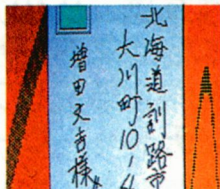 北海道釧路市
大川町10-4
増田文吉様